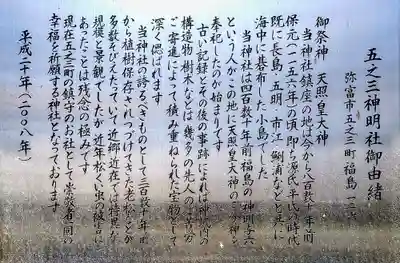 五之三神明社御由緒
弥富市五之三町福島一二六
御祭神 天照皇大神
当神社鎮座の地は今から八百数十年前
保元(一一五六年)の頃即ち源氏平氏の時代
既に長島・五明・市江・鯏浦などと共に
海中に碁布した小島でした
当神社は四百数十年前福島の神明与六
という人がこの地に天照皇大神のご分神を
奉祀したのが始まりです
古い記録とその後の事跡によれば神域内の
構造物・樹木などは幾多の先人のご苦労
ご寄進によって積み重ねられた宝物として
深く偲ばれます
当神社の誇るべきものとして三百数十年前
から植樹保存されつづけてきた老松などが
多数そびえたっていて近郷近在では特異な
規模と景観でしたが近年松くい虫の被害に
あったことは残念の極みです
現在五之三町の鎮守のお社として崇敬者一同の
幸福を祈願する神社となっております
平成二十年(二〇〇八年)